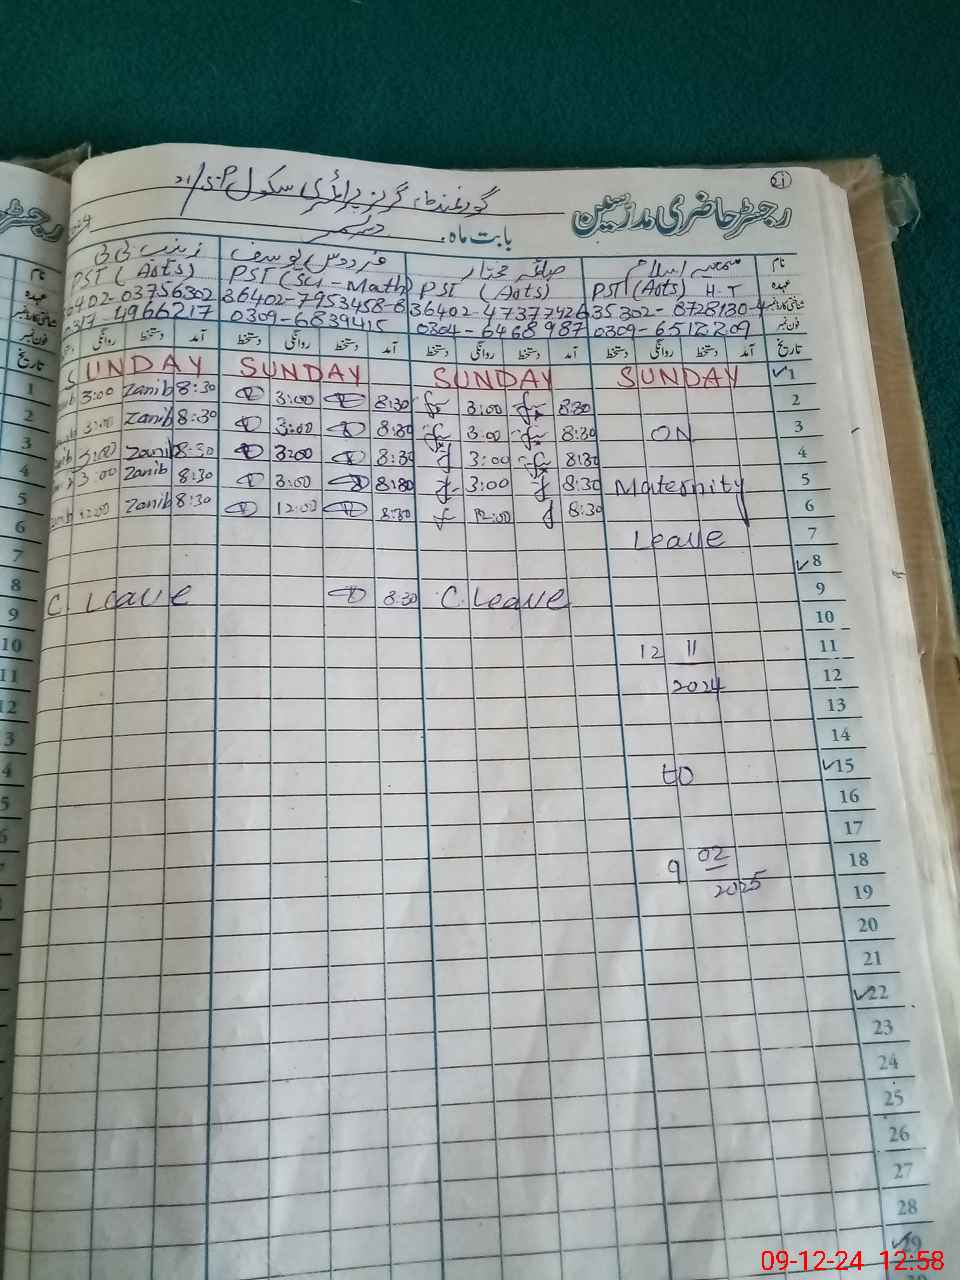 21
رجسٹر حاضری مدرسین گورنمنٹ گرلز پرائمری سکول 21/S-P
بابت ماہ دسمبر
نام صائمہ مختار فردوس یوسف زینب بی بی
عہدہ PST (Arts) H.T PST (Arts) PST (Sci-Math) PST (Arts)
شناختی کارڈ نمبر 35302-8728130-4 36402-4737742-6 36402-7953458-8 36402-03756302
فون نمبر 0309-6512209 0304-6468987 0309-6839415 0317-4966217
تاریخ آمد دستخط روانگی دستخط آمد دستخط روانگی دستخط آمد دستخط روانگی دستخط آمد دستخط روانگی دستخط
1 SUNDAY SUNDAY SUNDAY SUNDAY
2 8:30 3:00 8:30 3:00 8:30 Zanib 3:00
3 ON 8:30 3:00 8:30 3:00 8:30 Zanib 3:00
4 8:30 3:00 8:30 3:00 8:30 Zanib 3:00
5 Maternity 8:30 3:00 8:30 3:00 8:30 Zanib 3:00
6 8:30 12:00 8:30 12:00 8:30 Zanib 12:00
7 Leave
8
9 C. Leave 8:30 C Leave
10
11 12 11
12 2024
13
14
15 to
16
17
18 9 02
19 2025
20
21
22
23
24
25
26
27
28
29
رجسٹر حا
نام
عہدہ
شناختی کارڈ نمبر
فون نمبر
تاریخ
1
2
3
4
5
6
7
8
9
10
11
12
3
4
5
6
7
8
09-12-24 12:58